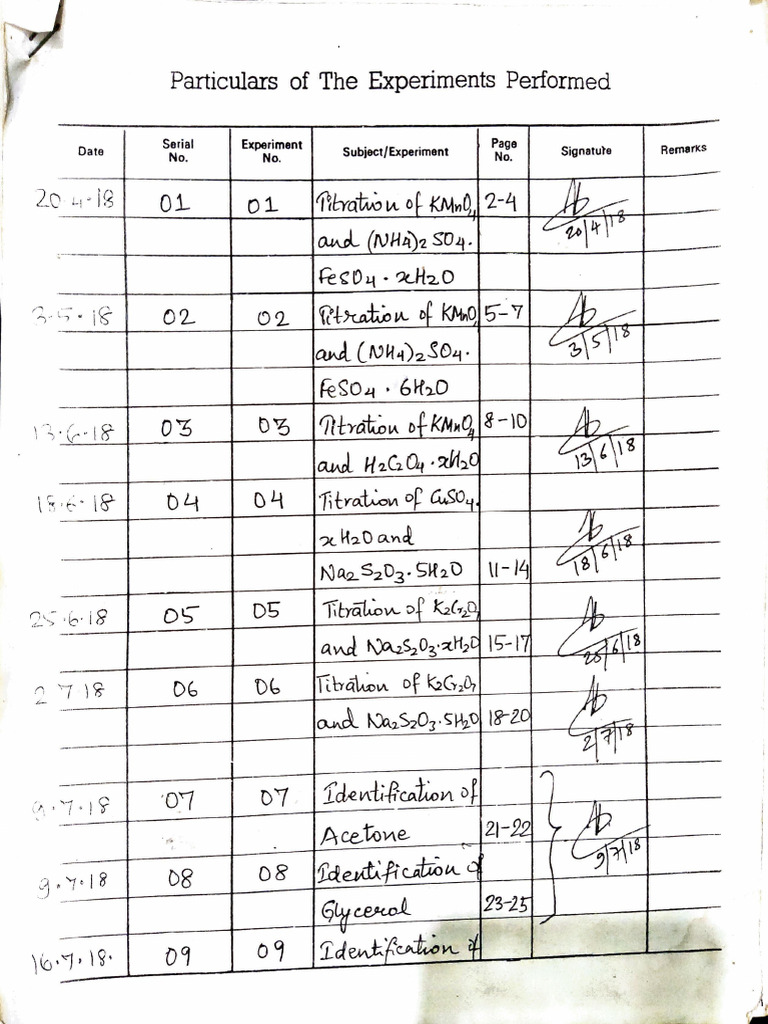 Particulars of The Experiments Performed
Date Serial No. Experiment No. Subject/Experiment Page No. Signature Remarks
20·4·18 01 01 Titration of KMnO4 2-4 20/4/18
and (NH4)2 SO4.
FeSO4 · xH2O
3·5·18 02 02 Titration of KMnO4 5-7 3/5/18
and (NH4)2 SO4.
FeSO4 · 6H2O
13·6·18 03 03 Titration of KMnO4 8-10
and H2C2O4·xH2O 13/6/18
18·6·18 04 04 Titration of CuSO4.
xH2O and 18/6/18
Na2S2O3·5H2O 11-14
25·6·18 05 05 Titration of K2Cr2O7
and Na2S2O3·xH2O 15-17 25/6/18
2 7·18 06 06 Titration of K2Cr2O7
and Na2S2O3·5H2O 18-20 2/7/18
9·7·18 07 07 Identification of
Acetone 21-22 9/7/18
9·7·18 08 08 Identification of
Glycerol 23-25
16·7·18· 09 09 Identification of